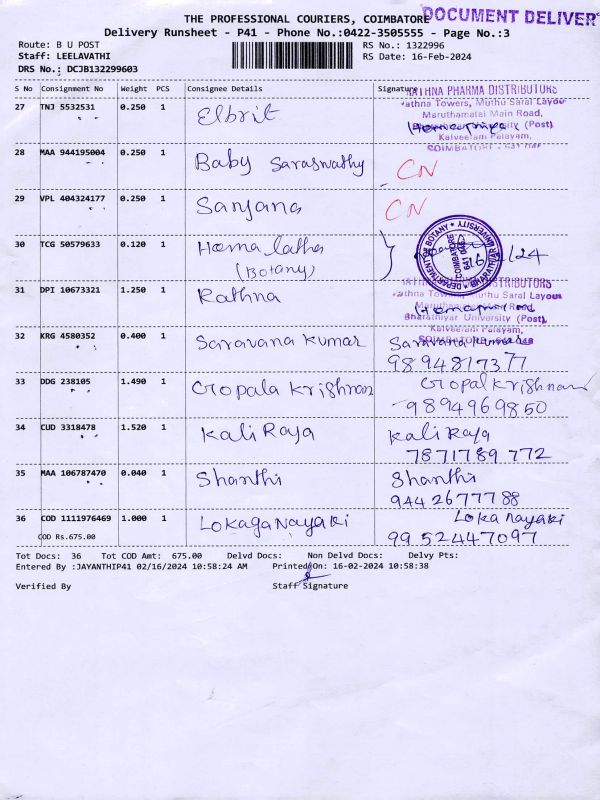 THE PROFESSIONAL COURIERS, COIMBATORE
DOCUMENT DELIVER
Delivery Runsheet - P41 - Phone No.:0422-3505555 - Page No.:3
Route: B U POST
RS No.: 1322996
Staff: LEELAVATHI
RS Date: 16-Feb-2024
DRS No.: DCJB132299603
S No Consignment No Weight PCS Consignee Details Signature
RATHNA PHARMA DISTRIBUTORS
Rathna Towers, Muthu Saral Layou
Maruthamalai Main Road,
(Post)
Kalveeram Palayam,
27 TNJ 5532531 0.250 1 Elbrit
28 MAA 944195004 0.250 1 Baby Saraswathy CN
29 VPL 404324177 0.250 1 Sanjana CN
30 TCG 50579633 0.120 1 Hema latha
(Botany)
DEPARTMENT OF BOTANY BHARATHIAR UNIVERSITY
COIMBATORE
641 046
31 DPI 10673321 1.250 1 Rathna
Bharathiyar University (Post),
Kalveeram Palayam,
32 KRG 4580352 0.400 1 Saravana Kumar Saravana Kumar
9894817377
33 DDG 238105 1.490 1 Gopala Krishnan Gopal Krishnan
9894969850
34 CUD 3318478 1.520 1 Kali Raja Kali Raja
7871789 772
35 MAA 106787470 0.040 1 Shanthi Shanthi
9442677788
36 COD 1111976469 1.000 1 Lokaganayaki Loka nayaki
COD Rs.675.00
9952447097
Tot Docs: 36 Tot COD Amt: 675.00 Delvd Docs: Non Delvd Docs: Delvy Pts:
Entered By :JAYANTHIP41 02/16/2024 10:58:24 AM Printed On: 16-02-2024 10:58:38
Verified By
Staff Signature